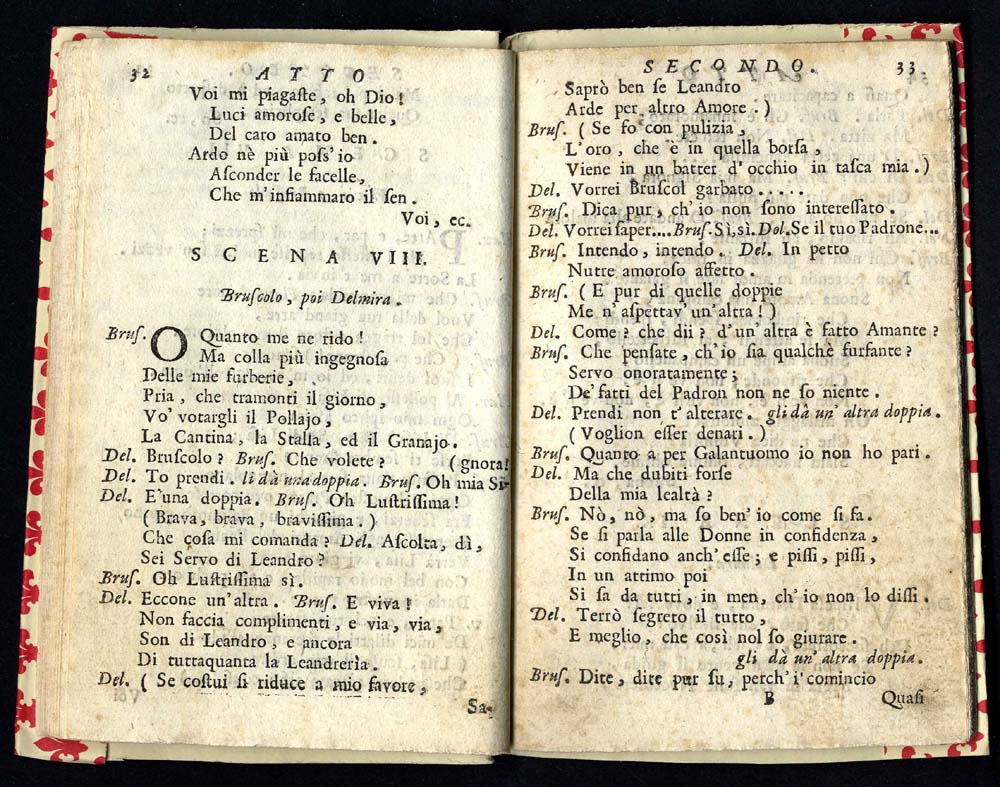 32
ATTO
Voi mi piagaſte, oh Dio!
Luci amoroſe, e belle,
Del caro amato ben.
Ardo nè più poſs'io
Aſconder le facelle,
Che m'infiammaro il ſen.
Voi, ec.
SCENA VIII.
Bruſcolo, poi Delmira.
Bruſ. O Quanto me ne rido!
Ma colla più ingegnoſa
Delle mie furberie,
Pria, che tramonti il giorno,
Vo' votargli il Pollajo,
La Cantina, la Stalla, ed il Granajo.
Del. Bruſcolo? Bruſ. Che volete? (gnora!
Del. To prendi. li dà una doppia. Bruſ. Oh mia Si-
Del. E' una doppia. Bruſ. Oh Luſtriſſima!
(Brava, brava, braviſſima.)
Che coſa mi comanda? Del. Aſcolta, dì,
Sei Servo di Leandro?
Bruſ. Oh Luſtriſſima sì.
Del. Eccone un'altra. Bruſ. E viva!
Non faccia complimenti, e via, via,
Son di Leandro, e ancora
Di tuttaquanta la Leandreria.
Del. (Se coſtui ſi riduce a mio favore,
Sa-
SECONDO. 33
Saprò ben ſe Leandro
Arde per altro Amore.)
Bruſ. (Se fo con pulizia,
L'oro, che è in quella borſa,
Viene in un batter d'occhio in taſca mia.)
Del. Vorrei Bruſcol garbato.....
Bruſ. Dica pur, ch'io non ſono intereſſato.
Del. Vorrei ſaper.... Bruſ. Sì, sì. Del. Se il tuo Padrone...
Bruſ. Intendo, intendo. Del. In petto
Nutre amoroſo affetto.
Bruſ. (E pur di quelle doppie
Me n'aſpettav' un'altra!)
Del. Come? che dii? d'un'altra è fatto Amante?
Bruſ. Che penſate, ch'io ſia qualchè furfante?
Servo onoratamente;
De' fatti del Padron non ne ſo niente.
Del. Prendi non t'alterare. gli dà un' altra doppia.
(Voglion eſſer denari.)
Bruſ. Quanto a per Galantuomo io non ho pari.
Del. Ma che dubiti forſe
Della mia lealtà?
Bruſ. Nò, nò, ma ſo ben'io come ſi fa.
Se ſi parla alle Donne in confidenza,
Si confidano anch'eſſe; e piſſi, piſſi,
In un attimo poi
Si ſa da tutti, in men, ch'io non lo diſſi.
Del. Terrò ſegreto il tutto,
E meglio, che così nol ſo giurare.
gli dà un' altra doppia.
Bruſ. Dite, dite pur ſu, perch'i' comincio
B Quaſi